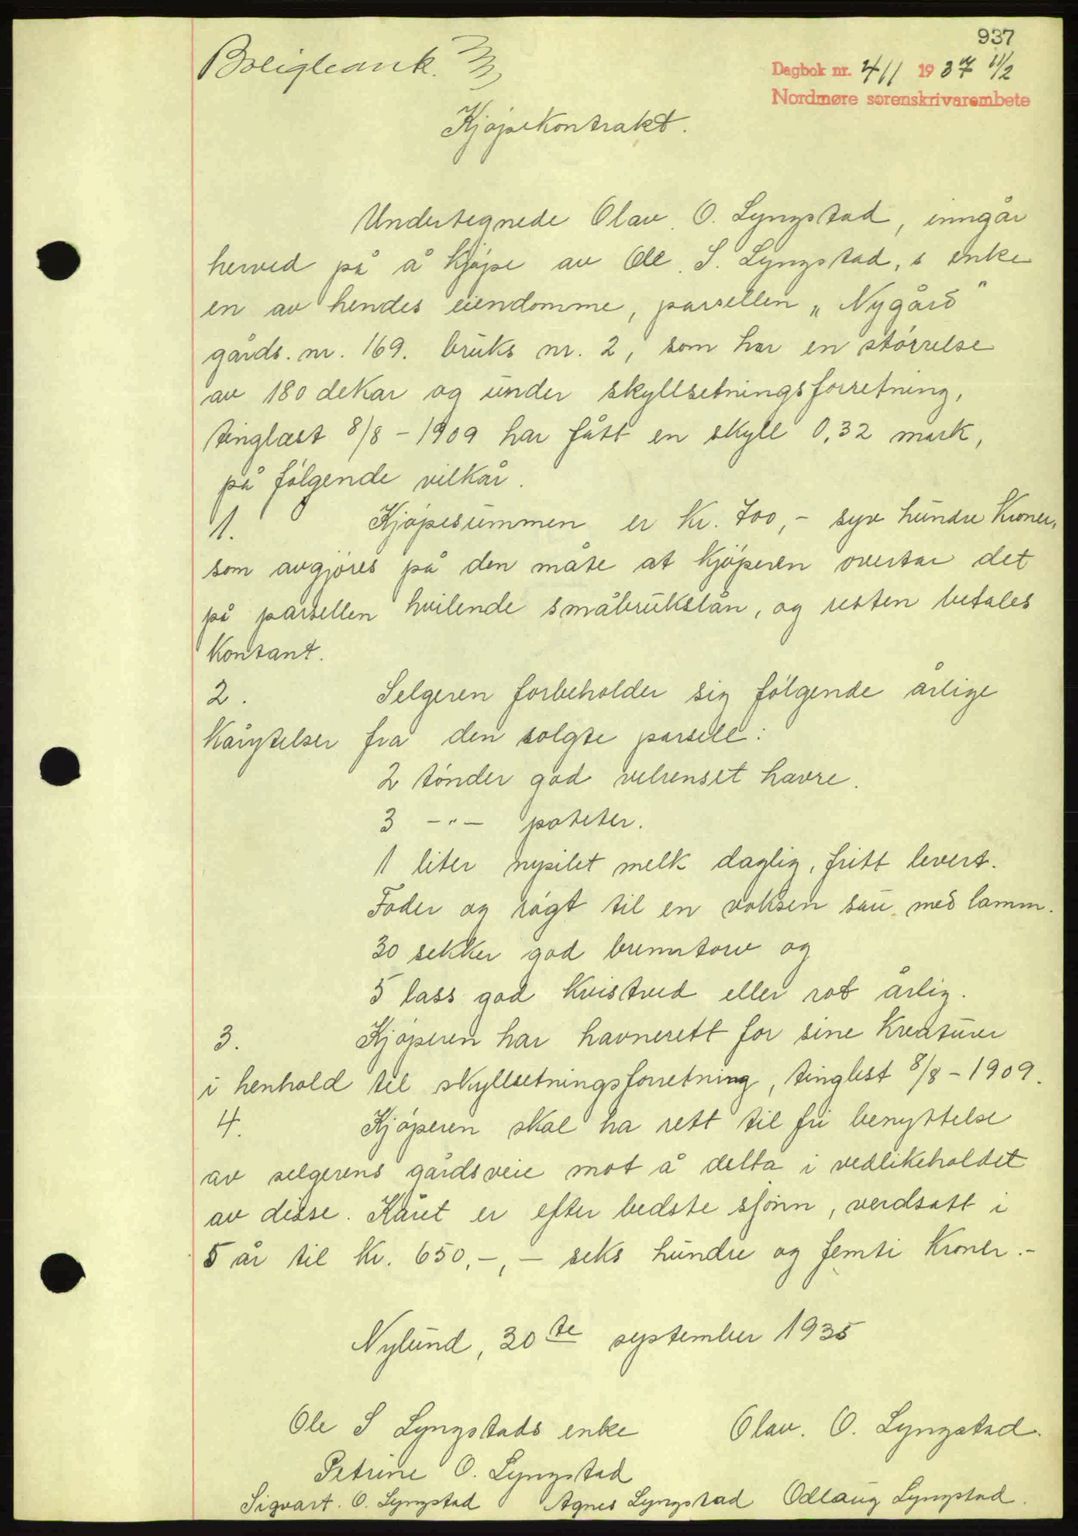 937
Boligbank.
Dagbok nr. 411 1937 11/2
Nordmøre sorenskrivarembete
Kjøpekontrakt.
Undertegnede Olav. O. Lyngstad, inngår
herved på å kjøpe av Ole. S. Lyngstad,s enke
en av hendes eiendomme, parsellen „Nygård"
gårds. nr. 169. bruks nr. 2, som har en størrelse
av 180 dekar og under skyllsetningsforretning,
tinglæst 8/8 - 1909 har fått en skyll 0,32 mark,
på følgende vilkår.
1. Kjøpesummen er kr. 700,- syv hundre kroner,
som avgjøres på den måte at kjøperen overtar det
på parsellen hvilende småbrukslån, og resten betales
kontant.
2. Selgeren forbeholder sig følgende årlige
kårytelser fra den solgte parsell:
2 tønder god velrenset havre.
3 -"- poteter.
1 liter nysilet melk daglig, fritt levert.
Foder og røgt til en voksen sau med lamm.
30 sekker god brenntorv og
5 lass god kvistved eller rot årlig.
3. Kjøperen har havnerett for sine kreaturer
i henhold til skyllsetningsforretning, tinglest 8/8 - 1909.
4. Kjøperen skal ha rett til fri benyttelse
av selgerens gårdsveie mot å delta i vedlikeholdet
av disse. Kåret er efter bedste skjønn, verdsatt i
5 år til kr. 650,-,- seks hundre og femti kroner.-
Nylund, 30te september 1935
Ole S Lyngstads enke Olav. O. Lyngstad.
Petrine O. Lyngstad
Sigvart. O. Lyngstad Agnes Lyngstad Odlaug Lyngstad.